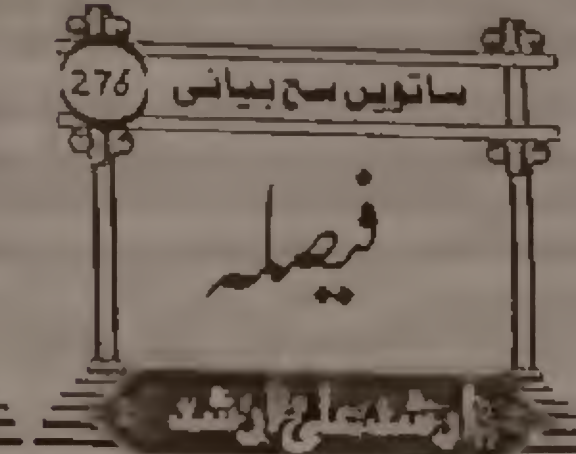 276
ساتویں سچ بیانی
فیصلہ
ارشد علی ارشد